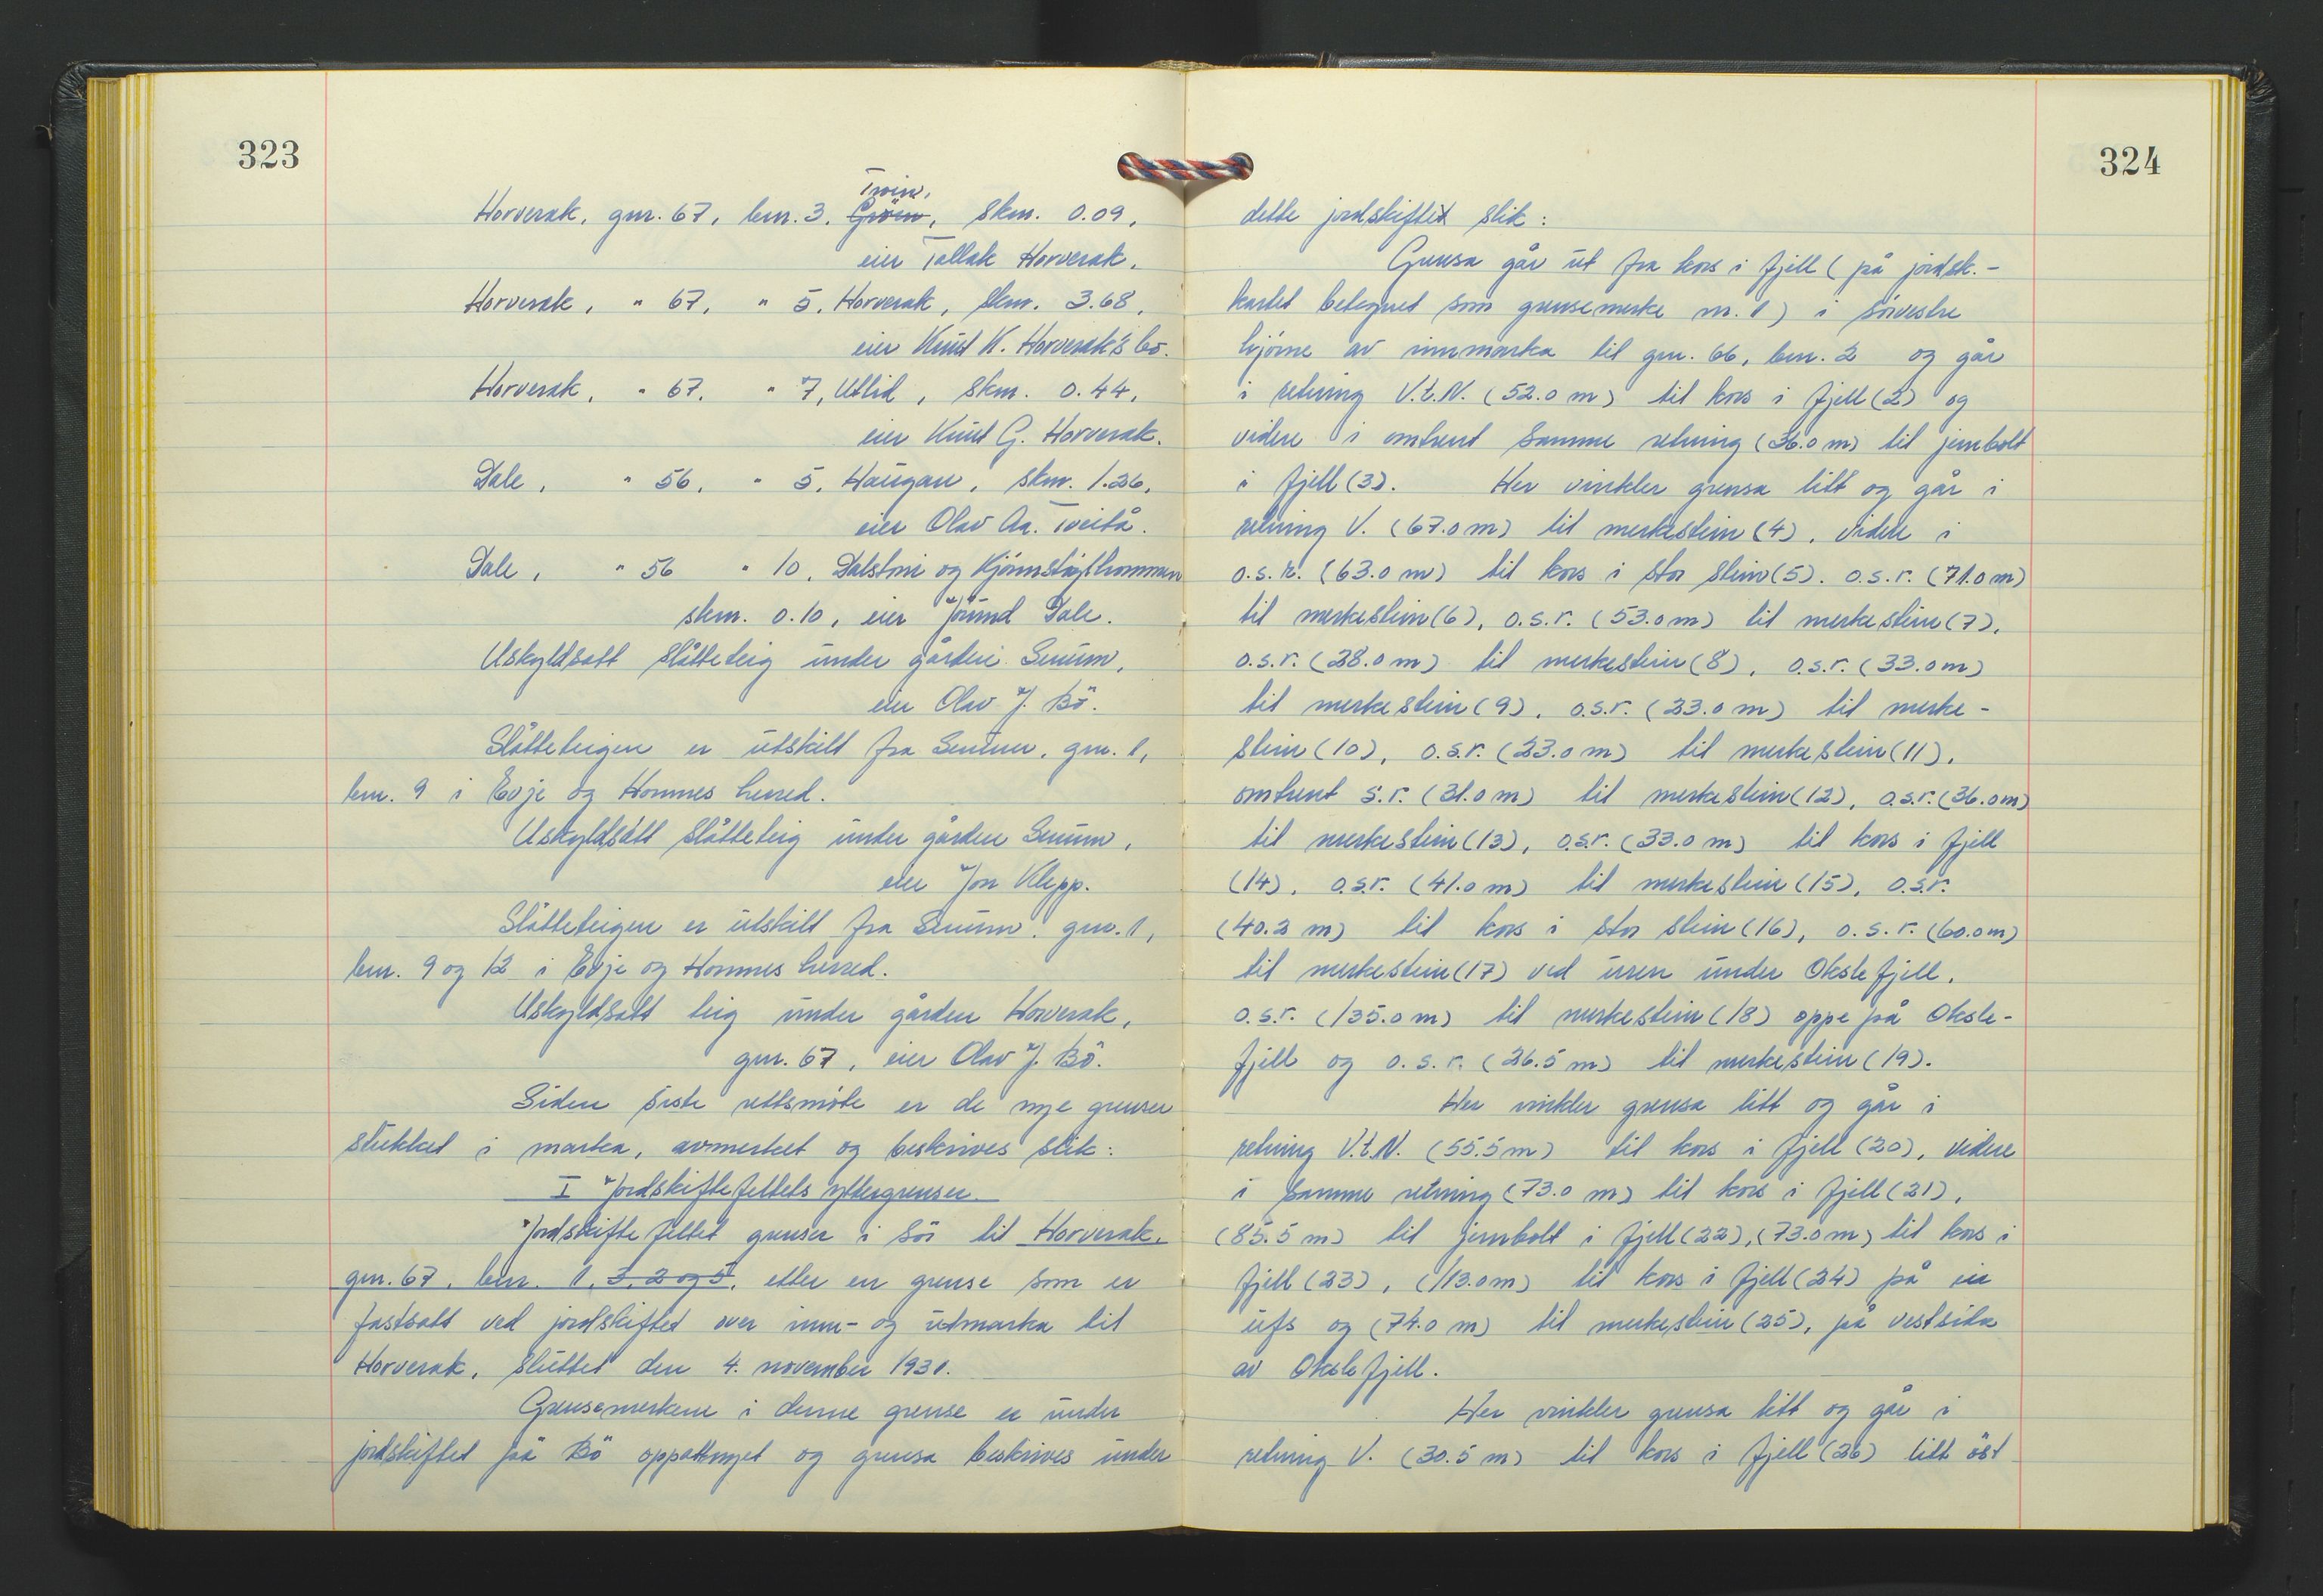 323
Tveiv,
Horverak, gnr. 67, bnr. 3. Gröiv, skm. 0.09,
eier Tallak Horverak.
Horverak, " 67, " 5. Horverak, skm. 3.68,
eier Knut K. Horverak's bo.
Horverak, " 67, " 7, Utlid, skm. 0.44,
eier Knut G. Horverak.
Dale, " 56, " 5, Haugan, skm. 1.26,
eier Olav Aa. Tveitå.
Dale, " 56 " 10, Dalstroi og
skm. 0.10, eier Jörund Dale.
Uskyldsatt slåtteteig under gården Senum,
eier Olav J. Bö.
Slåtteteigen er utskilt fra Senum, gnr. 1,
bnr. 9 i Evje og Hornnes herred.
Uskyldsatt slåtteteig under gården Senum,
eier Jon Klepp.
Slåtteteigen er utskilt fra Senum, gnr. 1,
bnr. 9 og 12 i Evje og Hornnes herred.
Uskyldsatt teig under gården Horverak,
gnr. 67, eier Olav J. Bö.
Siden siste rettsmöte er de nye grenser
stukket i marka, avmerket og beskrives slik:
I Jordskiftefeltets yttergrenser.
Jordskiftefeltet grenser i sör til Horverak,
gnr. 67, bnr. 1, 3, 2 og 5, etter en grense som er
fastsatt ved jordskiftet over inn- og utmarka til
Horverak, sluttet den 4. november 1931.
Grensemerkene i denne grense er under
jordskiftet på Bö oppattnyet og grensa beskrives under
324
dette jordskiftet slik:
Grensa går ut fra kors i fjell (på jordsk.-
kartet betegnet som grensemerke nr. 1) i sörvestre
hjörne av innmarka til gnr. 66, bnr. 2 og går
i retning V.t.N. (52.0 m) til kors i fjell (2) og
videre i omtrent samme retning (36.0 m) til jernbolt
i fjell (3). Her vinkler grensa litt og går i
retning V. (67.0 m) til merkestein (4), videre i
o.s.r. (63.0 m) til kors i stor stein (5). o.s.r. (71.0 m)
til merkestein (6), o.s.r. (53.0 m) til merkestein (7),
o.s.r. (28.0 m) til merkestein (8), o.s.r. (33.0 m)
til merkestein (9), o.s.r. (23.0 m) til merke-
stein (10), o.s.r. (23.0 m) til merkestein (11),
omtrent s.r. (31.0 m) til merkestein (12), o.s.r. (36.0 m)
til merkestein (13), o.s.r. (33.0 m) til kors i fjell
(14), o.s.r. (41.0 m) til merkestein (15), o.s.r.
(40.2 m) til kors i stor stein (16), o.s.r. (60.0 m)
til merkestein (17) ved uren under Okslefjell,
o.s.r. (135.0 m) til merkestein (18) oppe på Oksle-
fjell og o.s.r. (26.5 m) til merkestein (19).
Her vinkler grensa litt og går i
retning V.t.N. (55.5 m) til kors i fjell (20), videre
i samme retning (73.0 m) til kors i fjell (21),
(85.5 m) til jernbolt i fjell (22), (73.0 m) til kors i
fjell (23), (113.0 m) til kors i fjell (24) på ein
ufs og (74.0 m) til merkestein (25), på vestsida
av Okslefjell.
Her vinkler grensa litt og går i
retning V. (30.5 m) til kors i fjell (26) litt öst